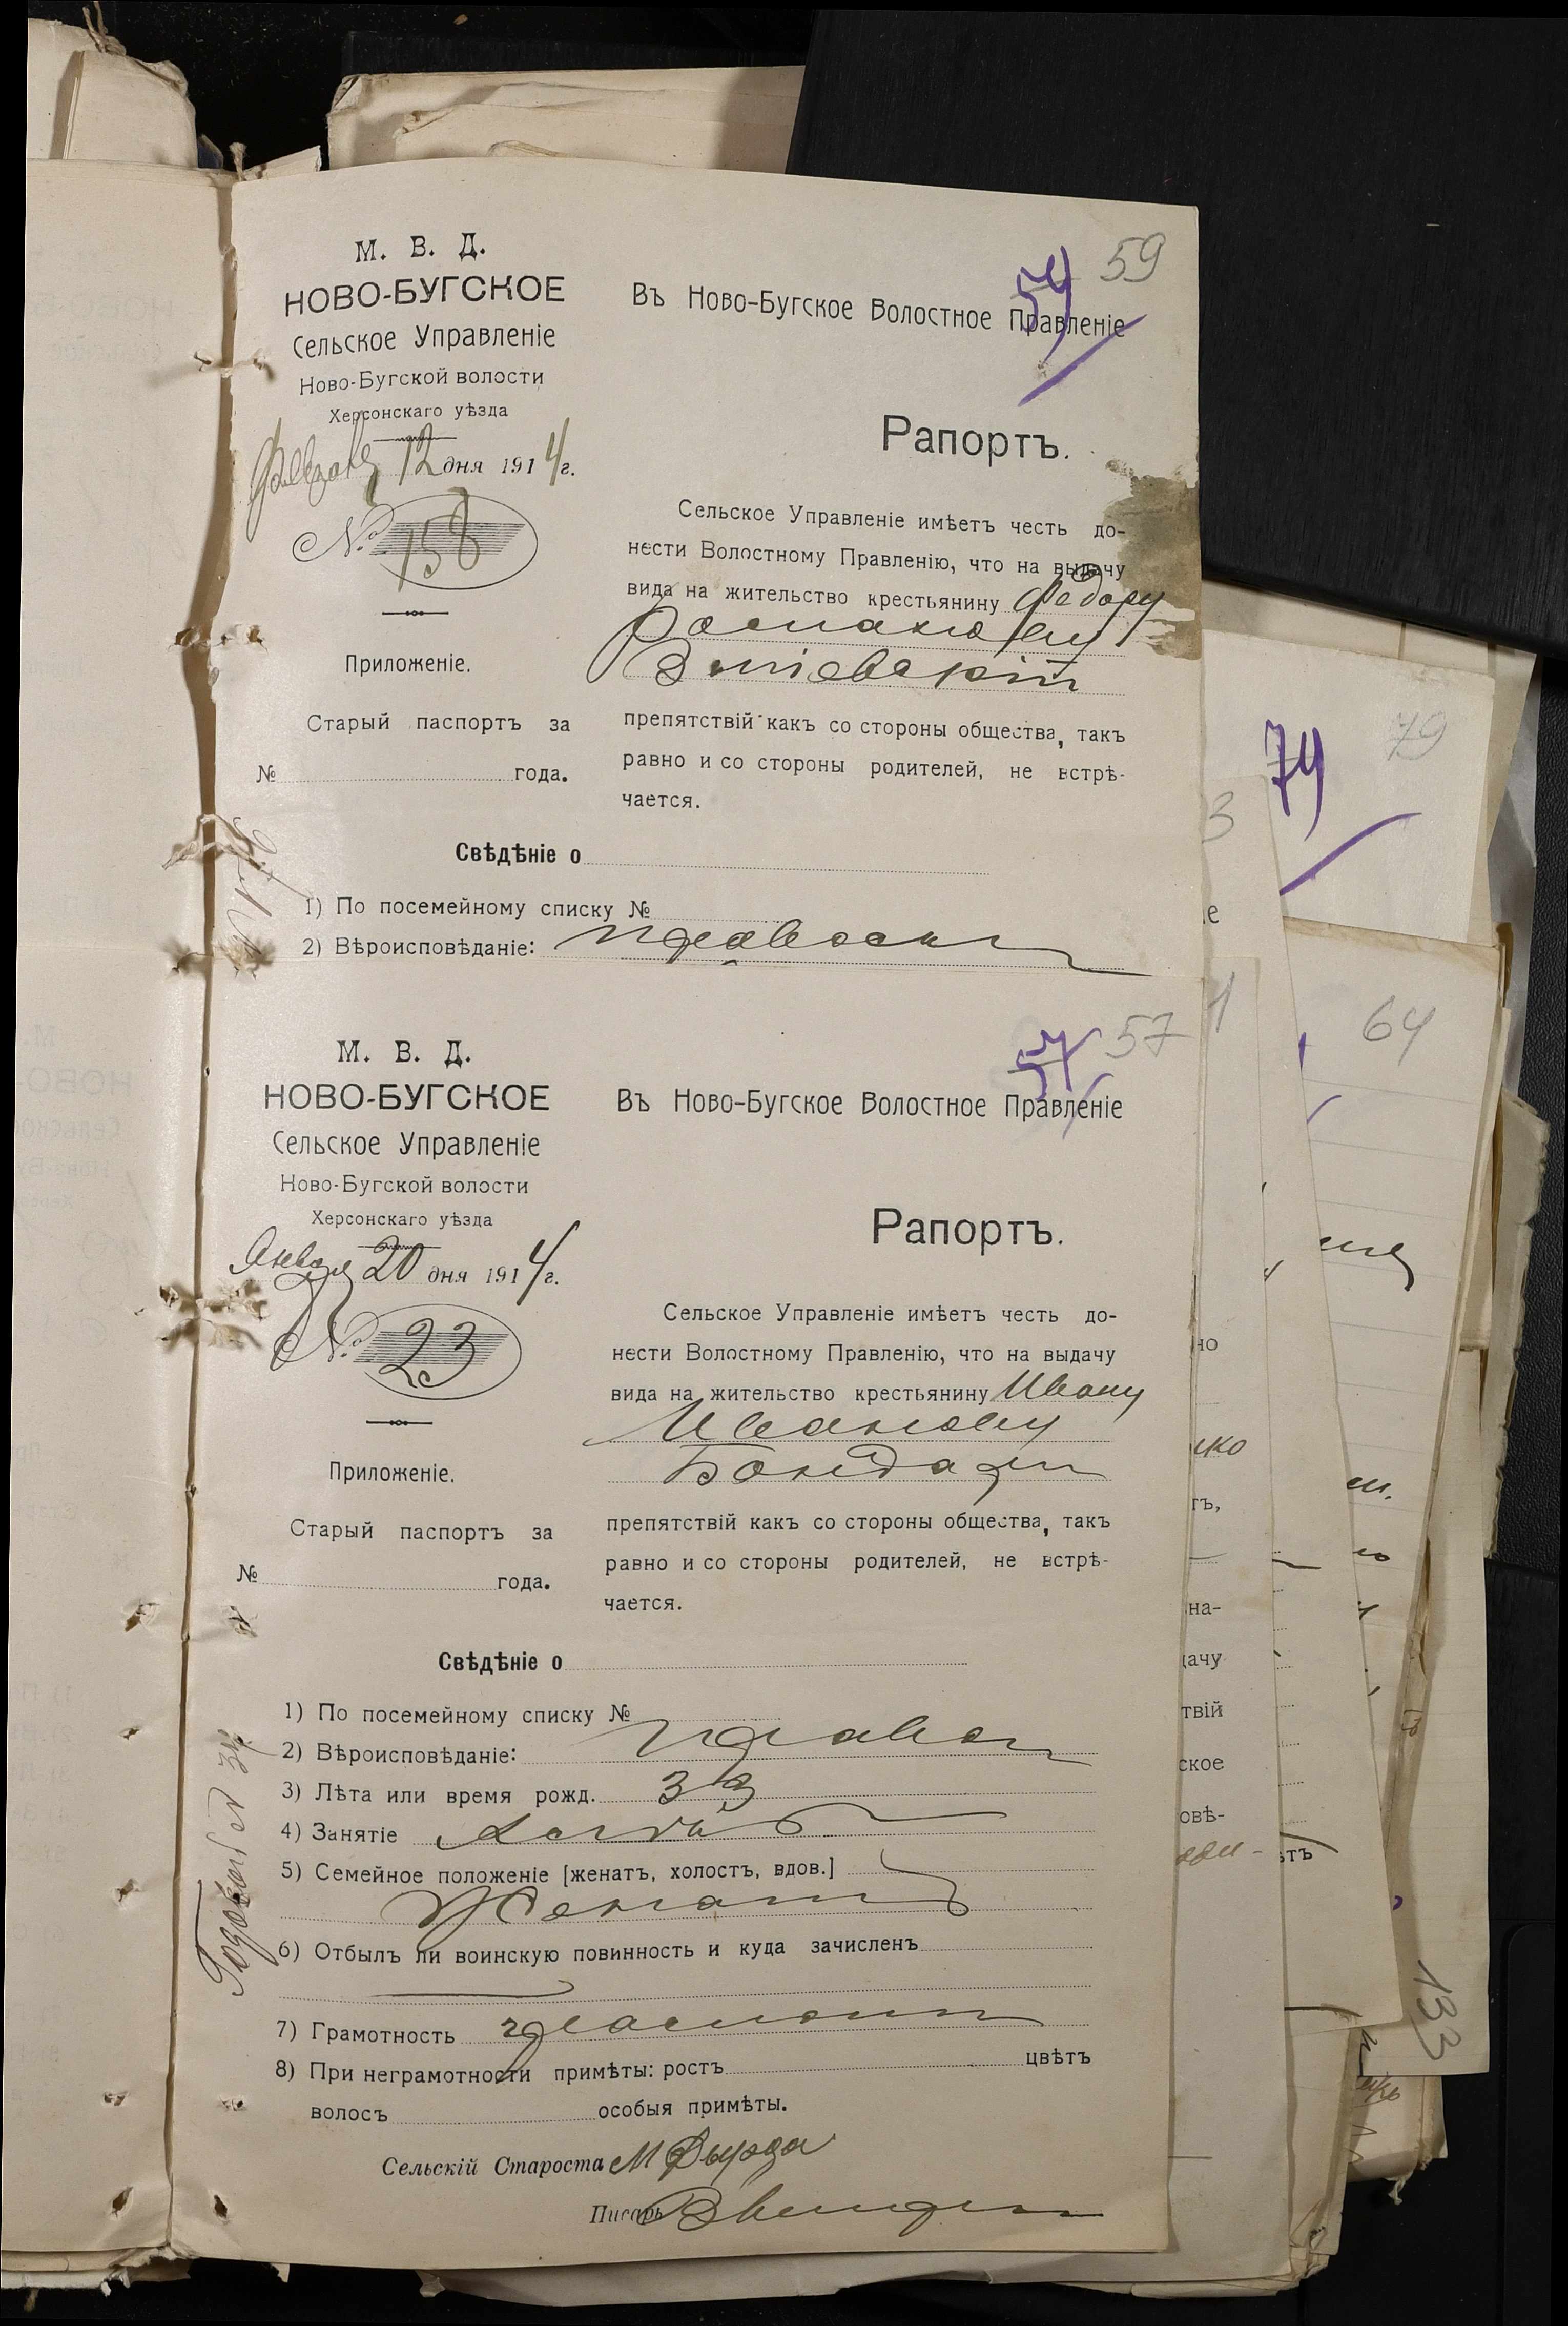 59
59
М. В. Д.
НОВО-БУГСКОЕ
Сельское Управленіе
Ново-Бугской волости
Херсонскаго уѣзда
12 дня 1914 г.
№ 158
Приложеніе.
Старый паспортъ за
№ года.
Въ Ново-Бугское Волостное Правленіе
Рапортъ.
Сельское Управленіе имѣетъ честь до-
нести Волостному Правленію, что на выдачу
вида на жительство крестьянину Федору
препятствій какъ со стороны общества, такъ
равно и со стороны родителей, не встрѣ-
чается.
Свѣдѣніе о
1) По посемейному списку №
2) Вѣроисповѣданіе: православн
57
57
М. В. Д.
НОВО-БУГСКОЕ
Сельское Управленіе
Ново-Бугской волости
Херсонскаго уѣзда
Января 20 дня 1914 г.
№ 23
Приложеніе.
Старый паспортъ за
№ года.
Въ Ново-Бугское Волостное Правленіе
Рапортъ.
Сельское Управленіе имѣетъ честь до-
нести Волостному Правленію, что на выдачу
вида на жительство крестьянину Ивану
Иванову
Бондарь
препятствій какъ со стороны общества, такъ
равно и со стороны родителей, не встрѣ-
чается.
Свѣдѣніе о
1) По посемейному списку №
2) Вѣроисповѣданіе: правос
3) Лѣта или время рожд. 33
4) Занятіе
5) Семейное положеніе [женатъ, холостъ, вдов.]
Женатъ
6) Отбылъ ли воинскую повинность и куда зачисленъ
7) Грамотность грамотн
8) При неграмотности примѣты: ростъ цвѣтъ
волосъ особыя примѣты.
Сельскій Староста М
Писарь
79
79
64
133